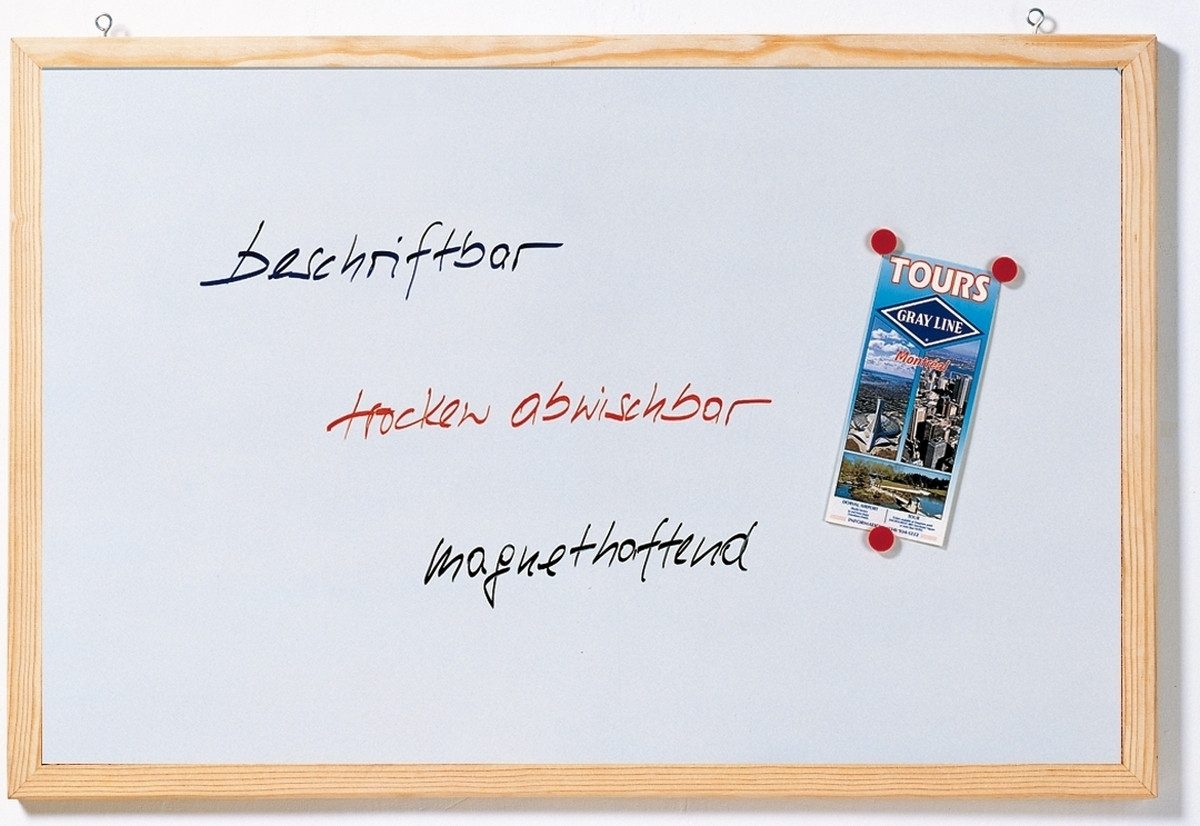 beschriftbar
trocken abwischbar
magnethaftend
TOURS
GRAY LINE
Montréal
DORVAL AIRPORT
TOUR